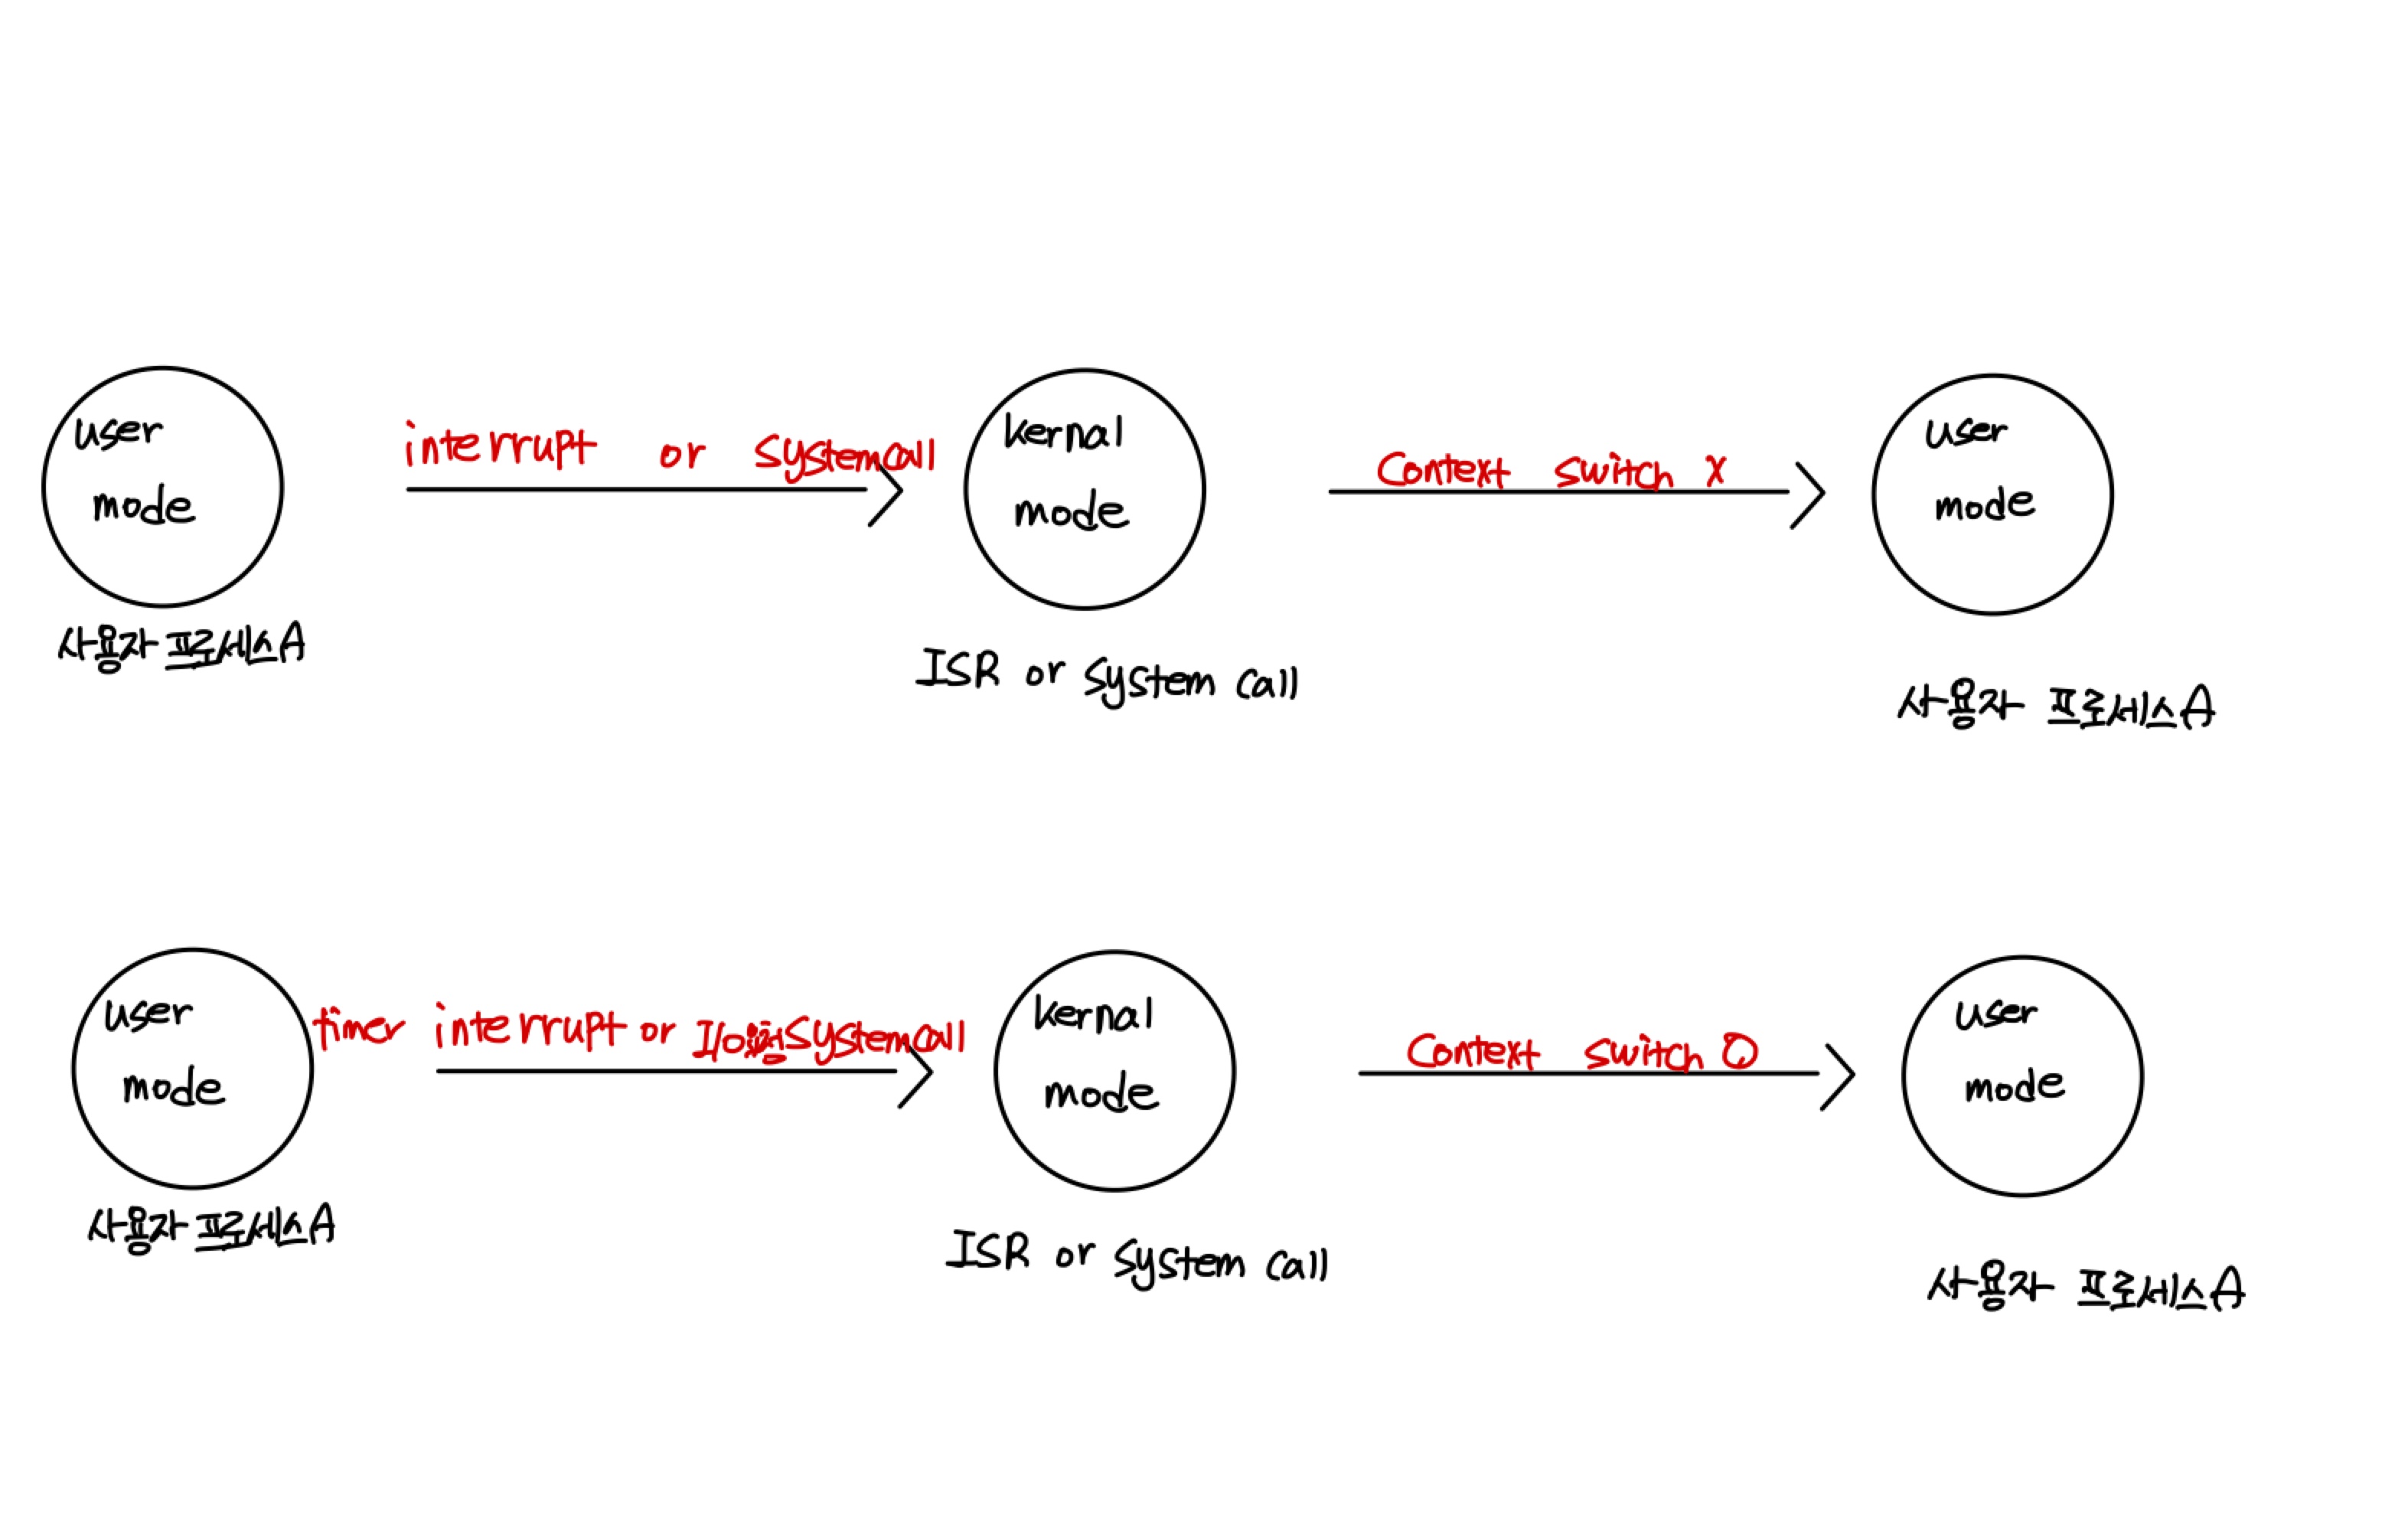 user
mode
사용자 프로세스A
interrupt or systemcall
kernal
mode
ISR or system call
Context switch X
user
mode
사용자 프로세스A
user
mode
사용자 프로세스A
timer interrupt or I/O systemcall
kernal
mode
ISR or system call
Context switch O
user
mode
사용자 프로세스A